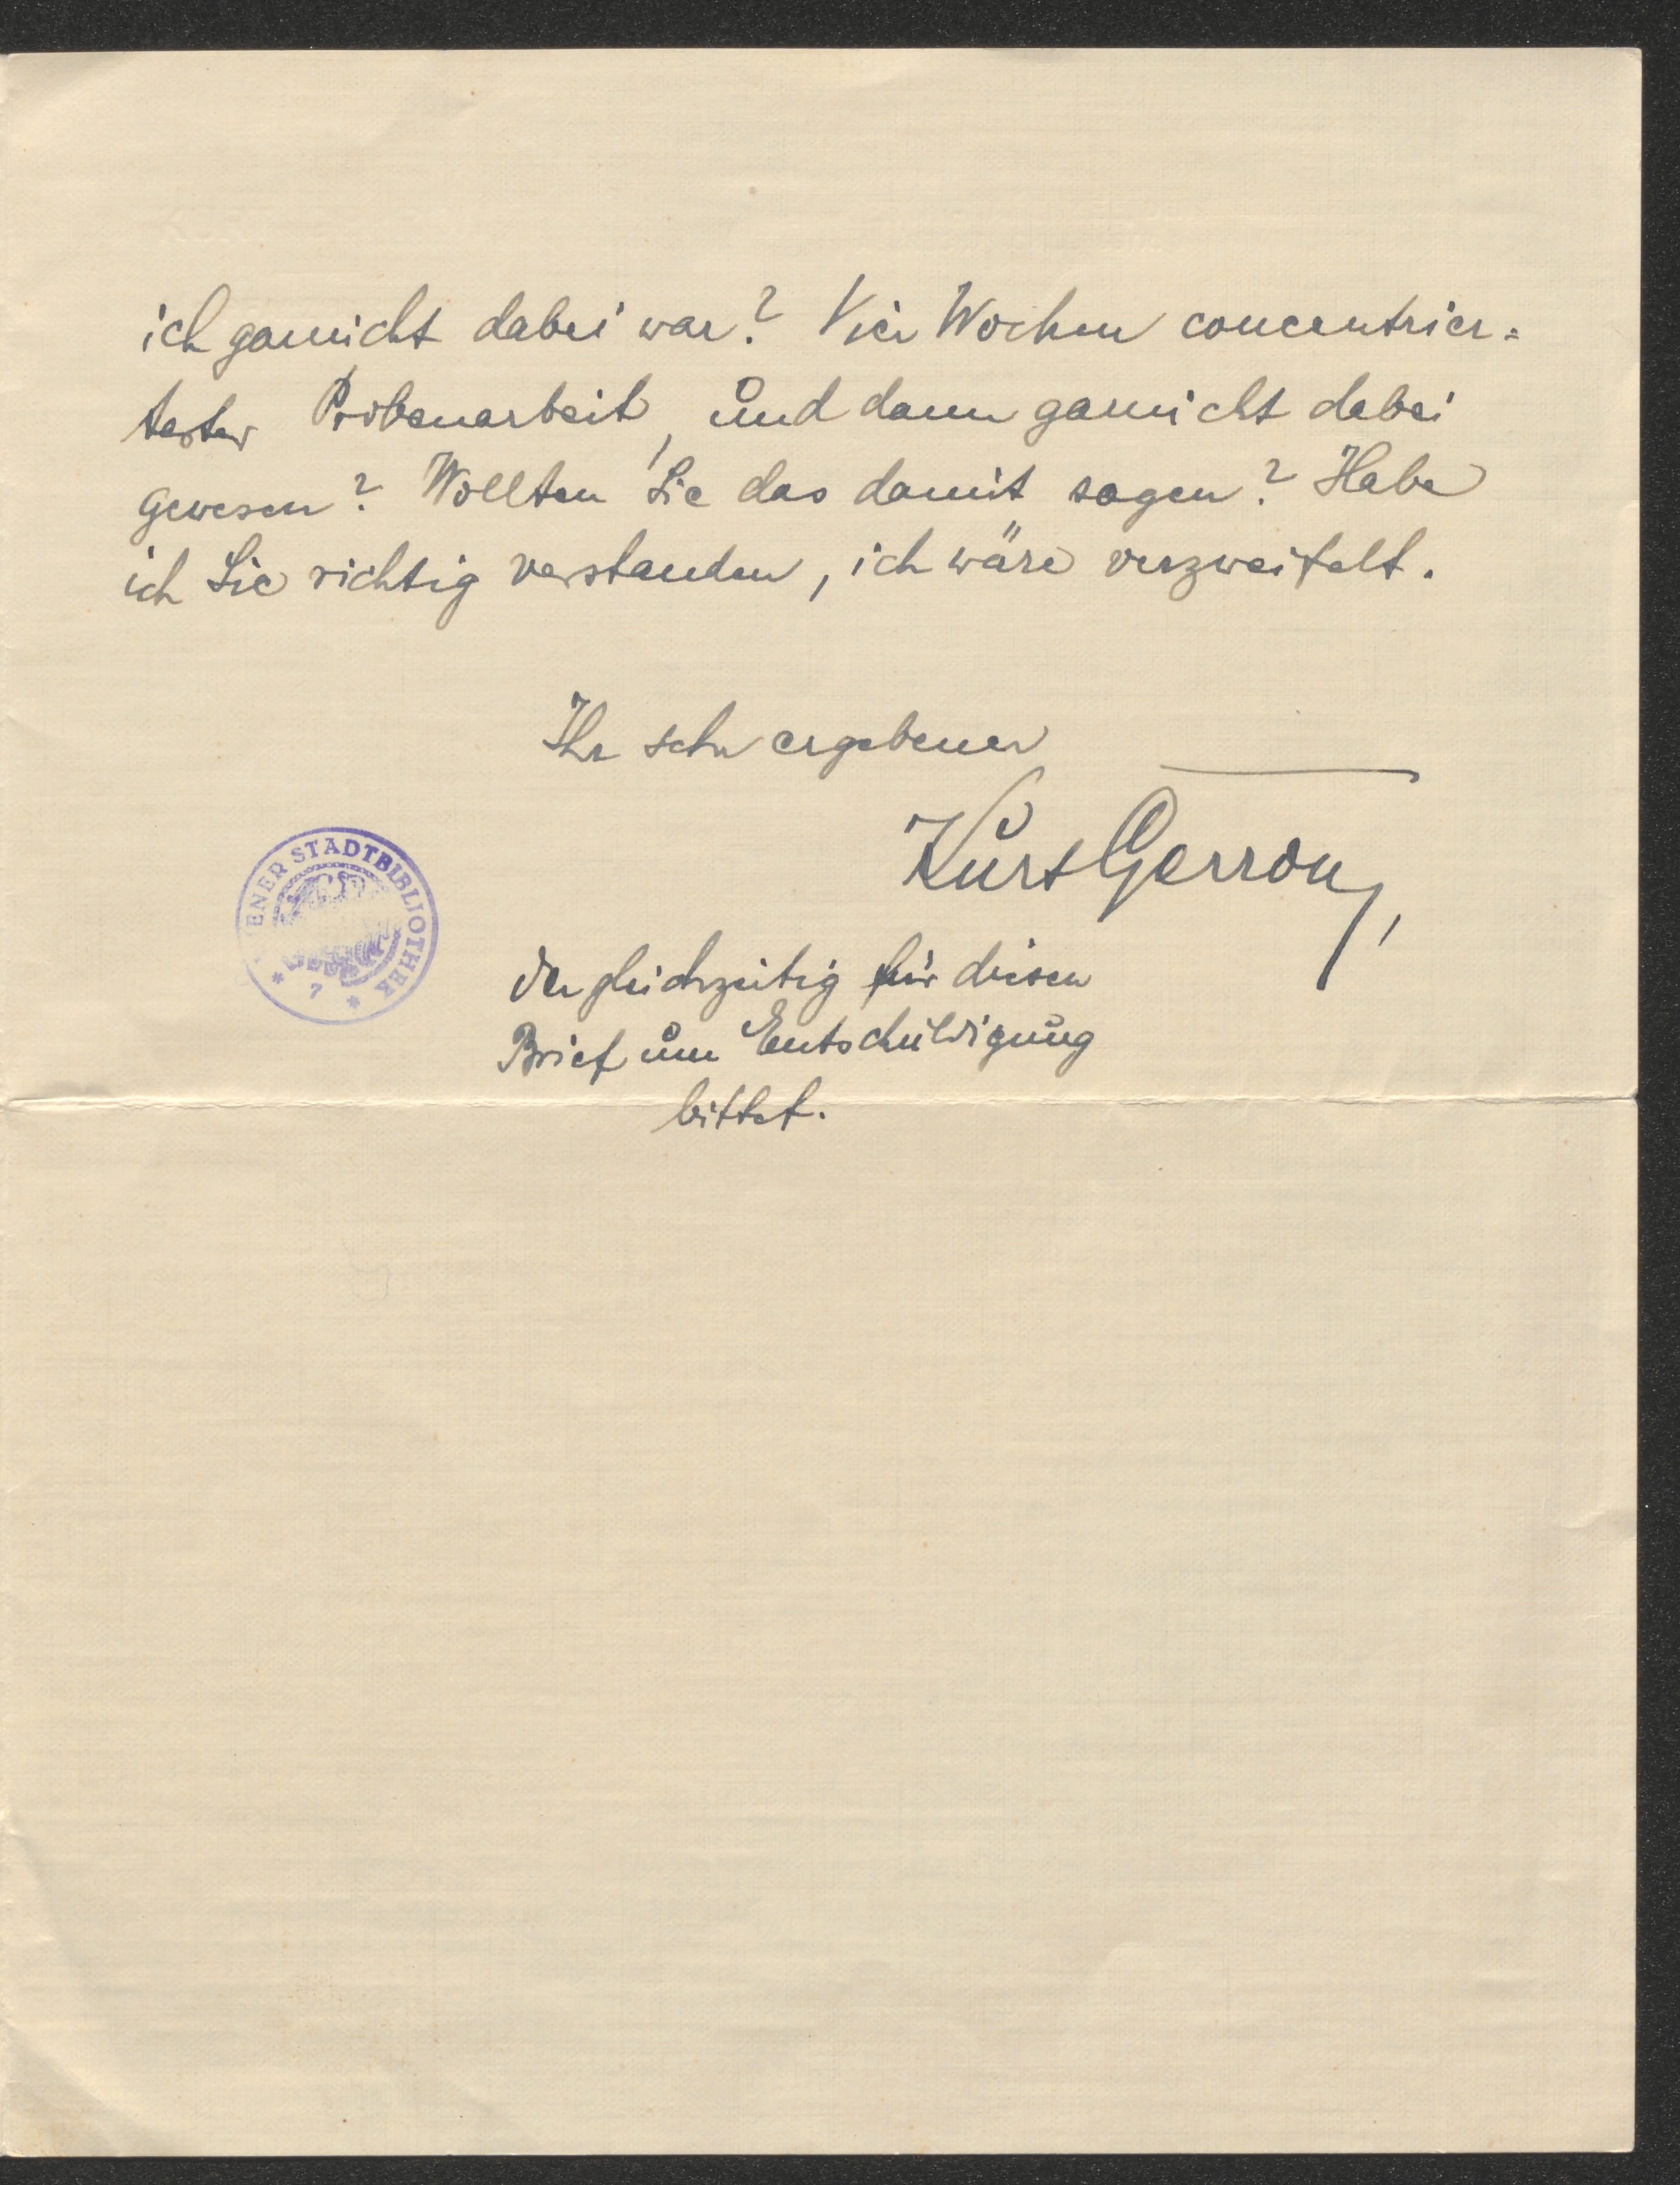 ich garnicht dabei war? Vier Wochen concentrier=
tester Probenarbeit, und dann garnicht dabei
gewesen? Wollten Sie das damit sagen? Habe
ich Sie richtig verstanden, ich wäre verzweifelt.
Ihr sehr ergebener
Kurt Gerron,
der gleichzeitig für diesen
Brief um Entschuldigung
bittet.
ENER STADTBIBLIOTHEK
* 7 *